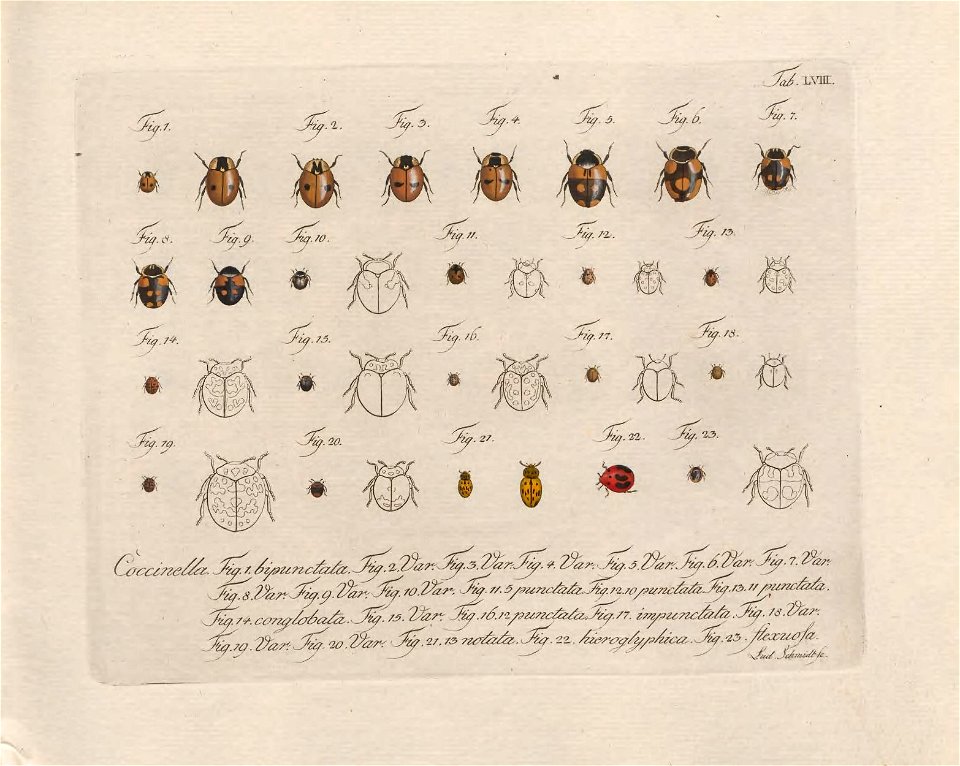 Tab. LVIII.
Fig. 1. Fig. 2. Fig. 3. Fig. 4. Fig. 5. Fig. 6. Fig. 7.
Fig. 8. Fig. 9. Fig. 10. Fig. 11. Fig. 12. Fig. 13.
Fig. 14. Fig. 15. Fig. 16. Fig. 17. Fig. 18.
Fig. 19. Fig. 20. Fig. 21. Fig. 22. Fig. 23.
Coccinella. Fig. 1. bipunctata. Fig. 2. Var. Fig. 3. Var. Fig. 4. Var. Fig. 5. Var. Fig. 6. Var. Fig. 7. Var.
Fig. 8. Var. Fig. 9. Var. Fig. 10. Var. Fig. 11. 5 punctata. Fig. 12. 10 punctata. Fig. 13. 11 punctata.
Fig. 14. conglobata. Fig. 15. Var. Fig. 16. 12 punctata. Fig. 17. impunctata. Fig. 18. Var.
Fig. 19. Var. Fig. 20. Var. Fig. 21. 13 notata. Fig. 22. hieroglyphica. Fig. 23. flexuoſa.
Lud. Schmidt sc.